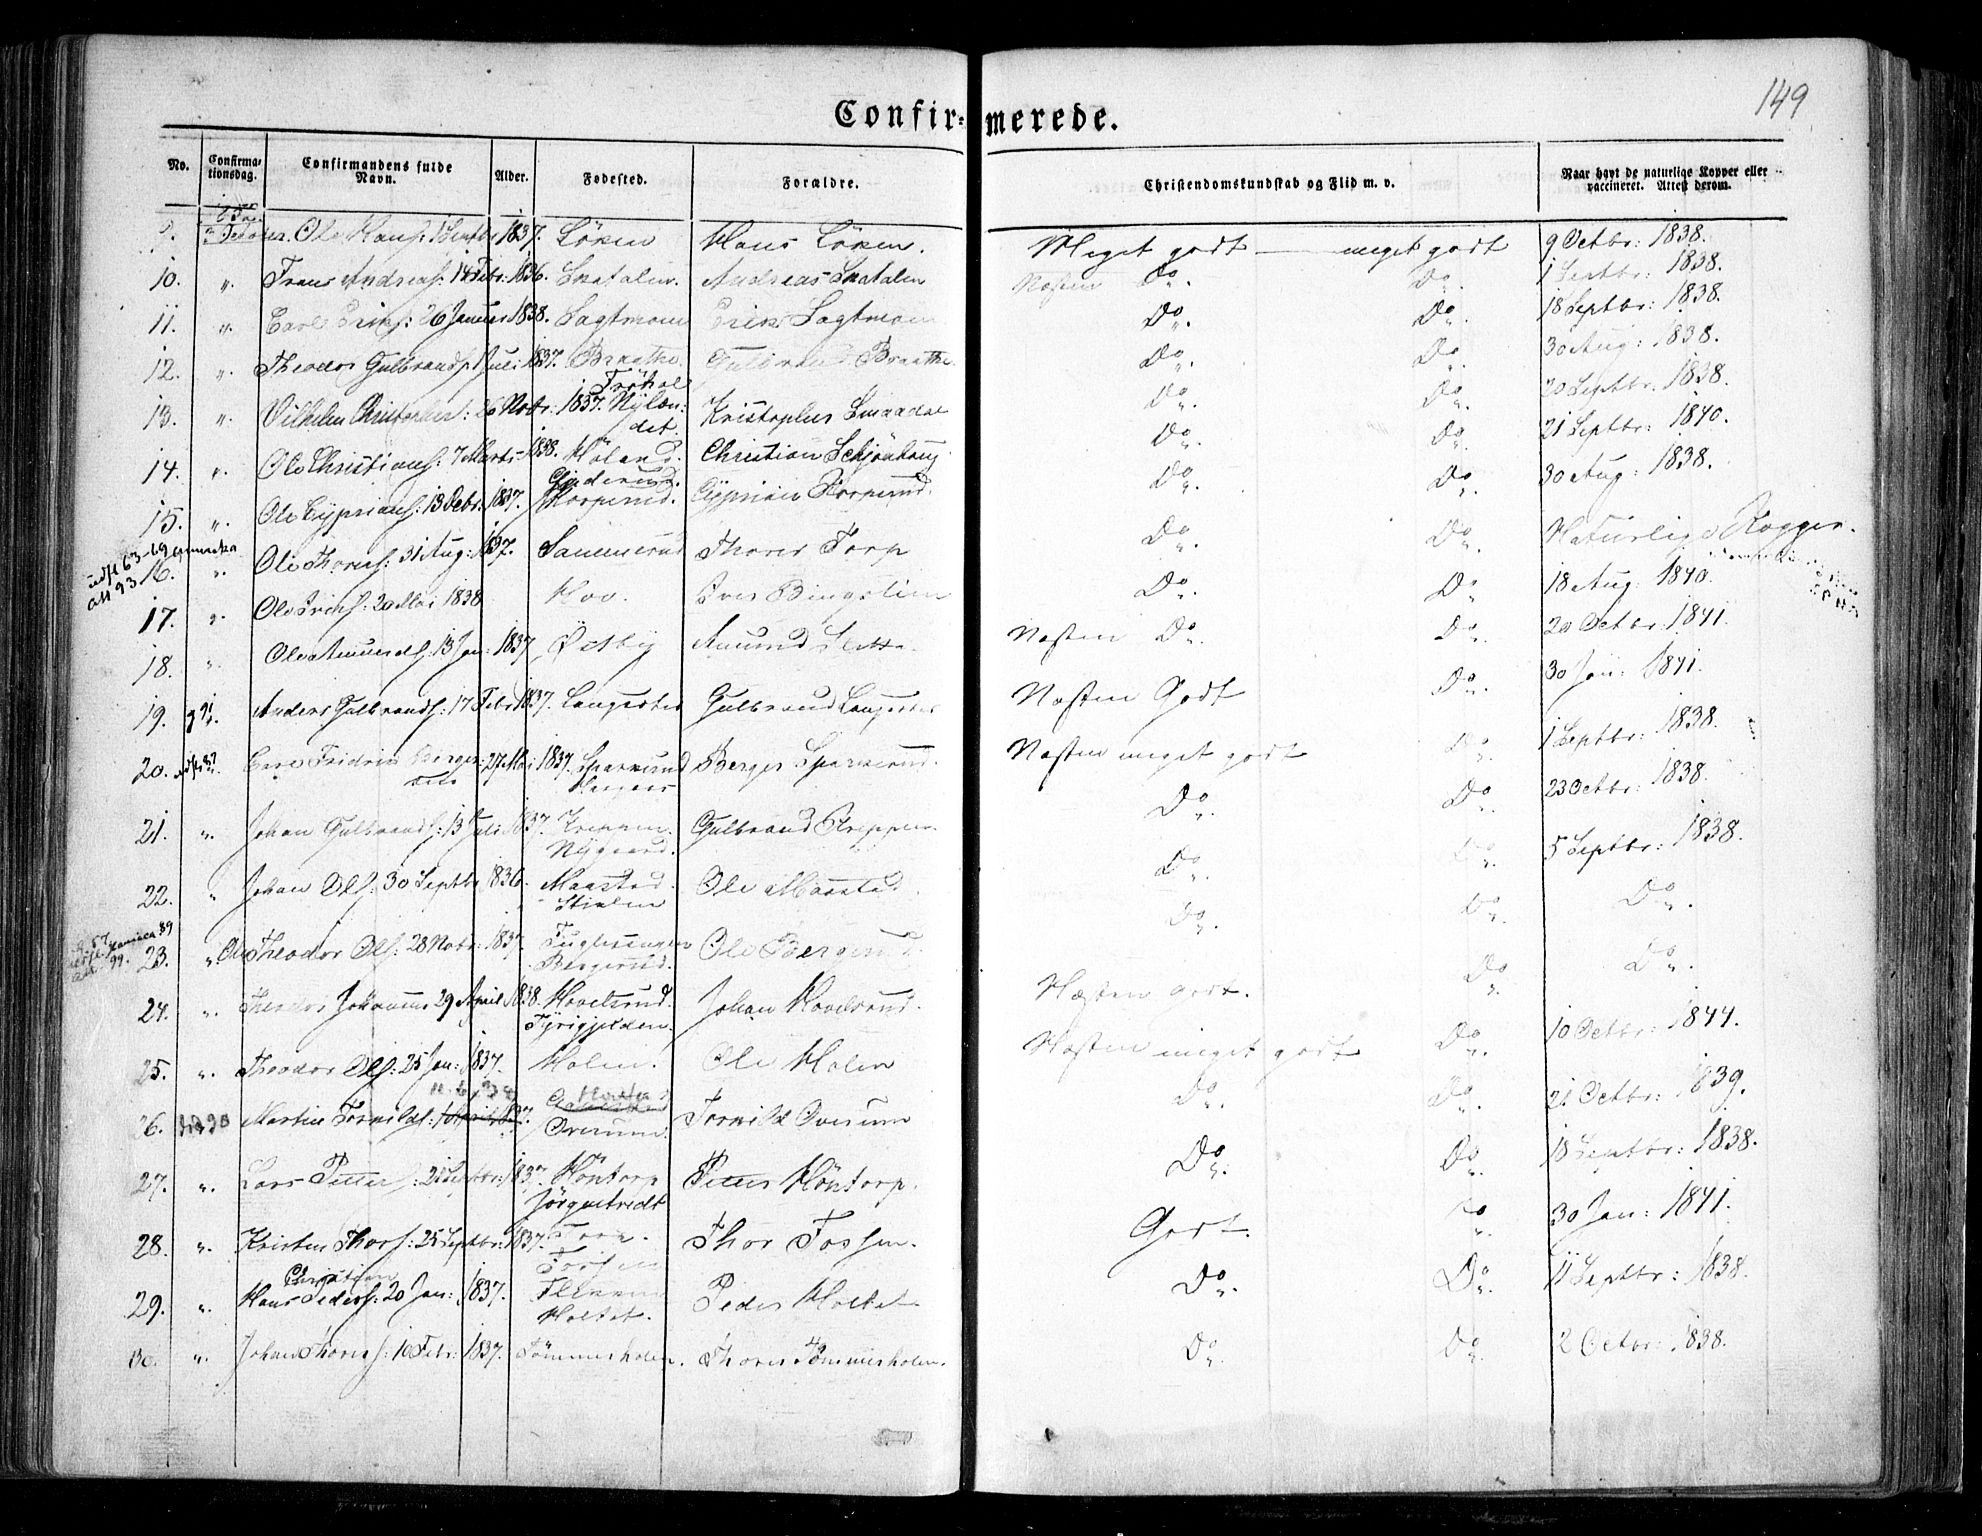 149
Confir= merede.
No. Confirma-tionsdag. Confirmandens fulde Navn. Alder. Fødested. Forældre. Christendomskundskab og Flid m. v. Naar havt de naturlige Kopper eller vaccineret. Attest derom.
Ole Hans: 1837. Løken Hans Løken. Meget godt meget godt 9 Octbr: 1838.
10. " Frans Andreas: 14 Febr: 1836. Skatalen. Andreas Skatalen Næsten Do. Do. 1 Septbr: 1838.
11. " Carl Eriks: 26 Januar 1838. Sagtmoen Erik Sagtmoen Do. Do. 18 Septbr: 1838.
12. " Theodor Gulbrands: Juli 1837. Braathe. Gulbrand Braathe. Do. Do. 30 Aug: 1838.
13. " Vilhelm 26 Novbr: 1837. Nÿlæn:det. Kristophes Do. Do. 20 Septbr: 1838.
14. " Ole Christians: 7 Marts 1838. Høland. Christian Schjønhaug Do. Do. 21 Septbr: 1840.
15. " Ole Cyprians: 13 Octbr: 1837. Korperud. Cyprian Korperud. Do. Do. 30 Aug: 1838.
16. " Ole Thores: 31 Aug: 1837. Sammerud Thores Torp Do. Do. Naturlige Kopper.
17. " Ole Ivers: 20 Mai 1838 Hov. Iver Do. Do. 18 Aug: 1840.
18. " Ole Amunds: 13 Jan: 1837 Østby Amund Næsten Do. Do. 20 Octbr: 1841.
19. Anders Gulbrands: 17 Febr 1837. Langestad Gulbrand Langestad Næsten Godt Do. 30 Jan: 1841.
20. Carl Fridrik Berger: 27 Mai 1837. Sparkerud Berger Sparkerud. Næsten meget godt Do. 1 Septbr: 1838.
21. " Johan Gulbrands: 13 Juli 1837. Kreppen. Nygaard. Gulbrand Kreppen. Do. Do. 23 Octbr: 1838.
22. " Johan Ols: 30 Septbr 1836. Maastad. Ole Maastad. Do. Do. 5 Septbr: 1838.
23. " Ole Theodor Ols: 28 Novbr: 1837. Fuglesangen Bergerud. Ole Bergerud. Do. Do. Do.
24. " Theodor Johannes 29 April 1838. Hovelsrud. Tyrigjelden. Johan Hovelsrud. Næsten godt. Do. Do.
25. " Theodor Ols: 25 Jan: 1837. Holen. Ole Holen Næsten meget godt Do. 10 Octbr: 1844.
26. Martin Tornilds: Overum. Tornild Overum Do. Do. 21 Octbr: 1839.
27. " Lars Petter: 21 Septbr: 1837. Høntorp Petter Høntorp. Do. Do. 18 Septbr: 1838.
28. " Kristen Thors: 25 Septbr: 1837. Thor Fossen. Godt. Do. 30 Jan: 1841.
29. " Hans Christian Peders: 20 Jan: 1837. Holtet. Peder Holtet Do. Do. 11 Septbr: 1838.
30. " Johan Thores: 10 Febr: 1837. Tømmerholen. Thores Tømmerholen. Do. Do. 2 Octbr: 1838.